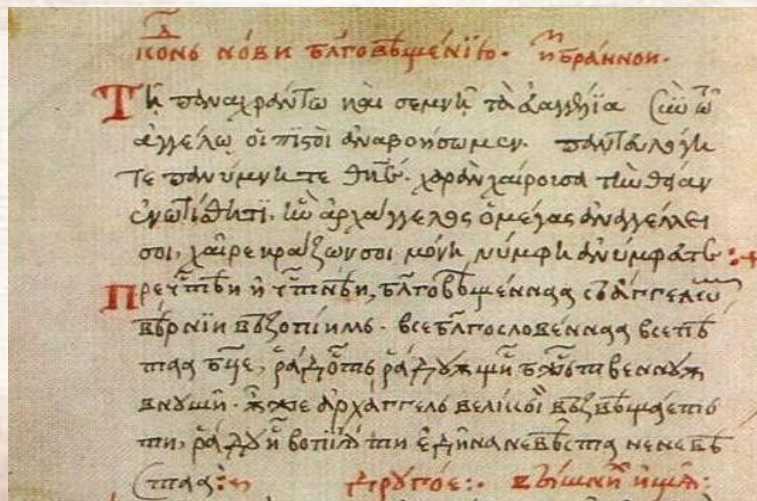 конь новы бл҃говѣщенїю. и҆збраннои.
Τῆ παναχράντω καὶ σεμνῆ τὰ ἀαγγέλια σὺν τῶ
ἀγγέλω οἱ πιςοὶ ἀναβοήσωμεν. παντάυλογη
τε πανύμνητε θηϊὲ. χαρὰν χαίροισα τὴν θείαν
ἐνωτίσθητϊ. ἣν ἀρχάγγελος ὁ μέγας ἀναγέλλει
σοι, χαῖρε κράζων σοι μόνη νύμφη ἀνύμφετε :~
Пречⷭ҇тѣи и҆ чⷭ҇тнѣи, бл҃говѣщенаа съ а҆гг҃елѡⷨ
вѣрнїи възопїимъ. все бл҃гословенаа всепѣ
таа бц҃е, ра́дость ра́дꙋѫщиⷭ бж҃ьственꙋѫ
внꙋши. ѫ҆же архаггелъ великоⷨ възвѣщаетъ
ти, ра́дꙋиⷭ вопїѧ ти е҆дина невѣста неневѣ
стаа :~ дрꙋгое :~ вышнїиⷯ ищѧ :